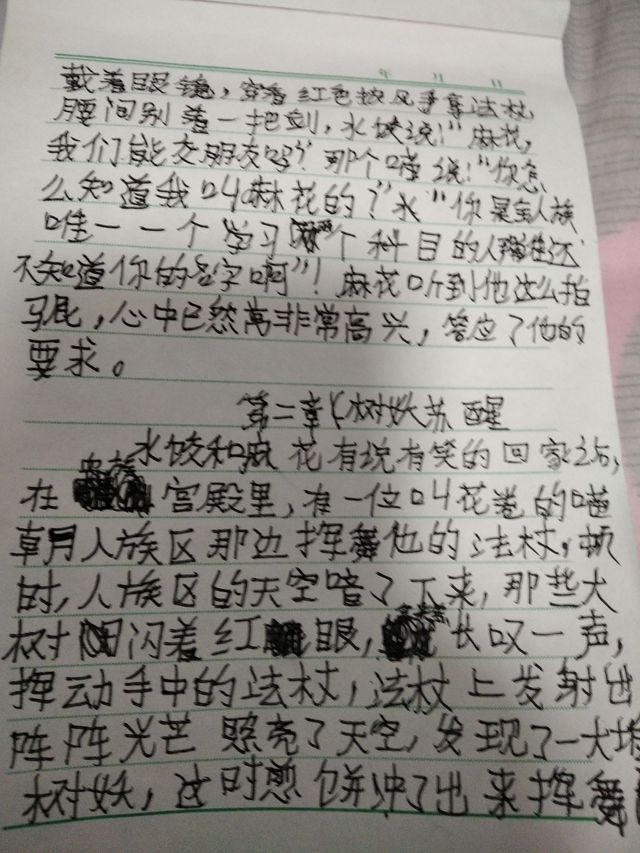 年 月 日
戴着眼镜，穿着红色披风手拿法杖，
腰间别着一把剑，水饺说！"麻花，
我们能交朋友吗？"那个喵说！"你怎
么知道我叫麻花的？"水"你是全人族
唯一一个学习 个科目的人 还
不知道你的名字啊"！麻花听到他这么拍
马屁，心中已然高非常高兴，答应了他的
要求。
第二章《树妖苏醒
水饺和麻花有说有笑的回家之后，
在 宫殿里，有一位叫花卷的喵
朝人族区那边挥舞他的法杖，顿
时，人族区的天空暗了下来，那些大
树 闪着红 眼， 长叹一声，
挥动手中的法杖，法杖上发射出
阵阵光芒照亮了天空，发现了一大堆
树妖，这时煎饼冲了出来挥舞